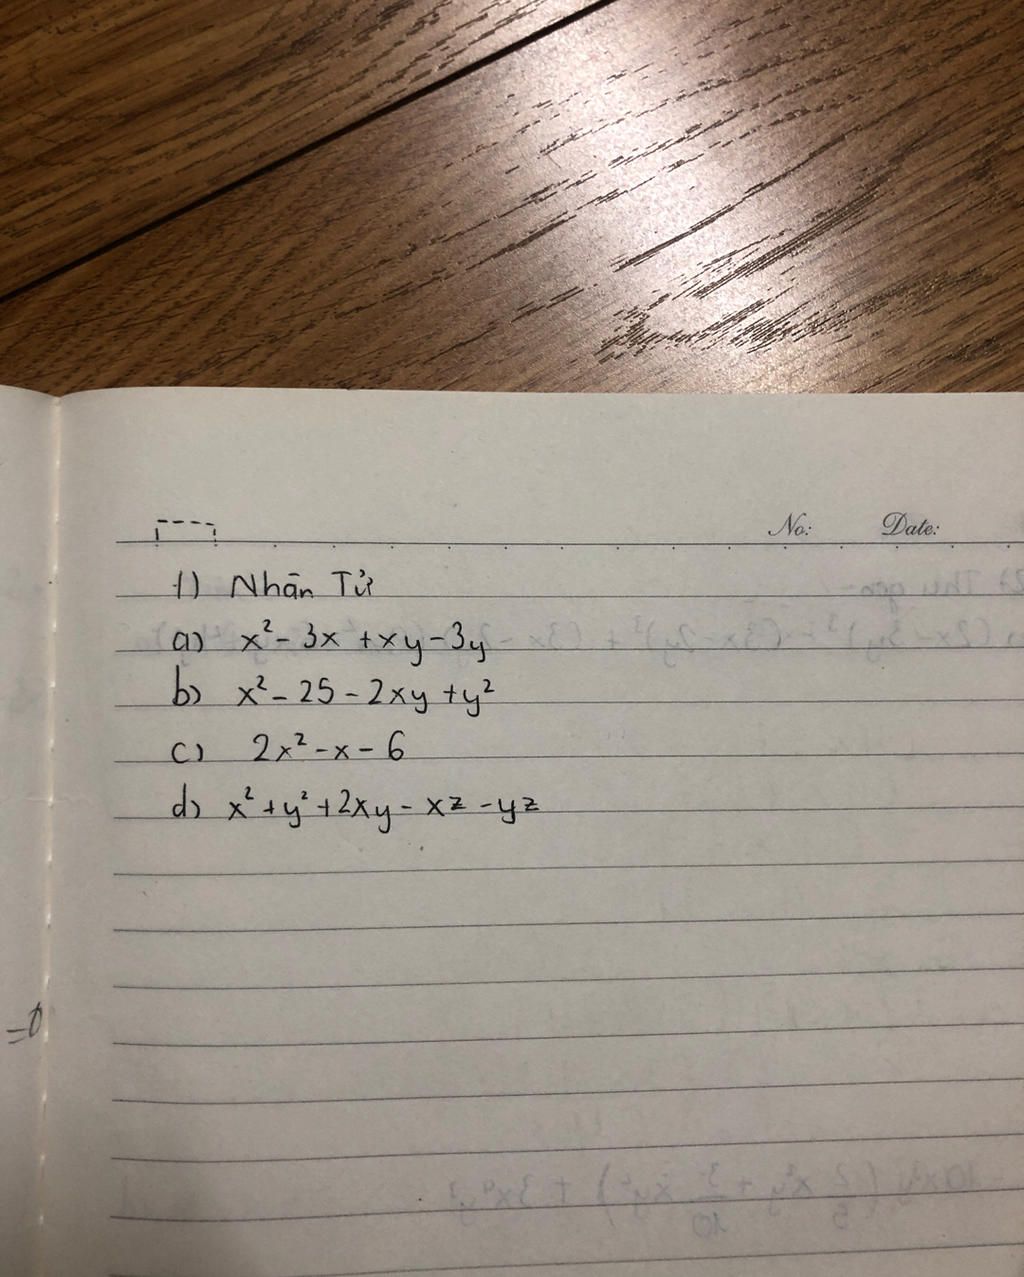 No: Date:
1) Nhân Tử
a) x² - 3x + xy - 3y
b) x² - 25 - 2xy + y²
c) 2x² - x - 6
d) x² + y² + 2xy - xz - yz
=0